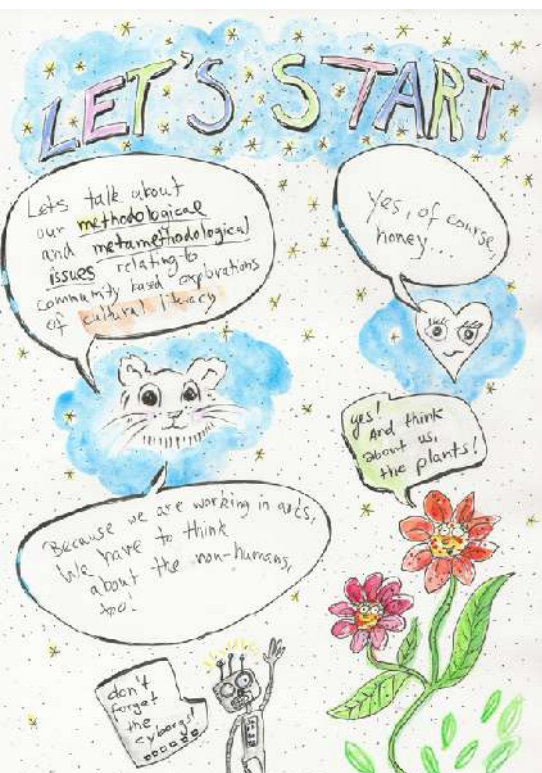 LET'S START
Lets talk about
our methodological
and metamethodological
issues relating to
community based explorations
of cultural literacy
Yes, of course,
honey...
yes!
And think
about us,
the plants!
Because we are working in arts,
We have to think
about the non-humans,
too.
don't
forget
the
cyborgs!